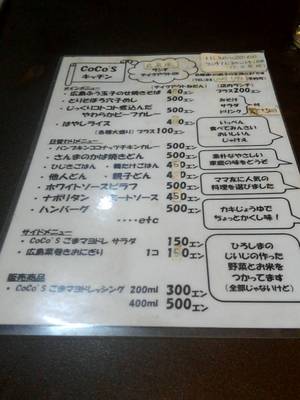 CoCo'S
キッチン
ランチ
テイクアウトOK
メインメニュー
(テイクアウトおだん)
(店内ランチ)
プラス200エン
・広島ふう玉子のせ焼きそば
・とりそぼろ穴子めし 500エン
・じっくりコトコト煮込んだ
やわらかビーフカレー
・はやしライス
(各種大盛り) プラス100エン
サラダ
ドリンク
日替わりメニュー
・パンプキンココナッツチキンカレー 500エン
・さんまのかば焼きどん
・ひじきごはん 鶏だけごはん
・他人どん 親子どん
・ホワイトソースピラフ
・ナポリタン ミートソース
・ハンバーグ 500エン
・・・・etc
いっぺん
食べてみさい
おいしいん
じゃけえ
素朴なやさしい
家庭の味をどうぞ
ママ友に人気の
料理を選びました
カキじょうゆで
ちょっとかくし味!
サイドメニュー
・CoCo'S ごまマヨドレ サラダ 150エン
・広島菜巻きおにぎり 1コ
販売商品
・CoCo'S ごまマヨドレッシング 200ml 300エン
400ml 500エン
ひろしまの
じいじの作った
野菜とお米を
つかってます
(全部じゃないけど)